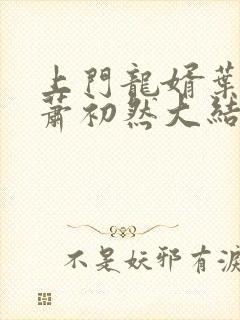 上門龍婿葉
蕭初然大結
不是妖邪有淚